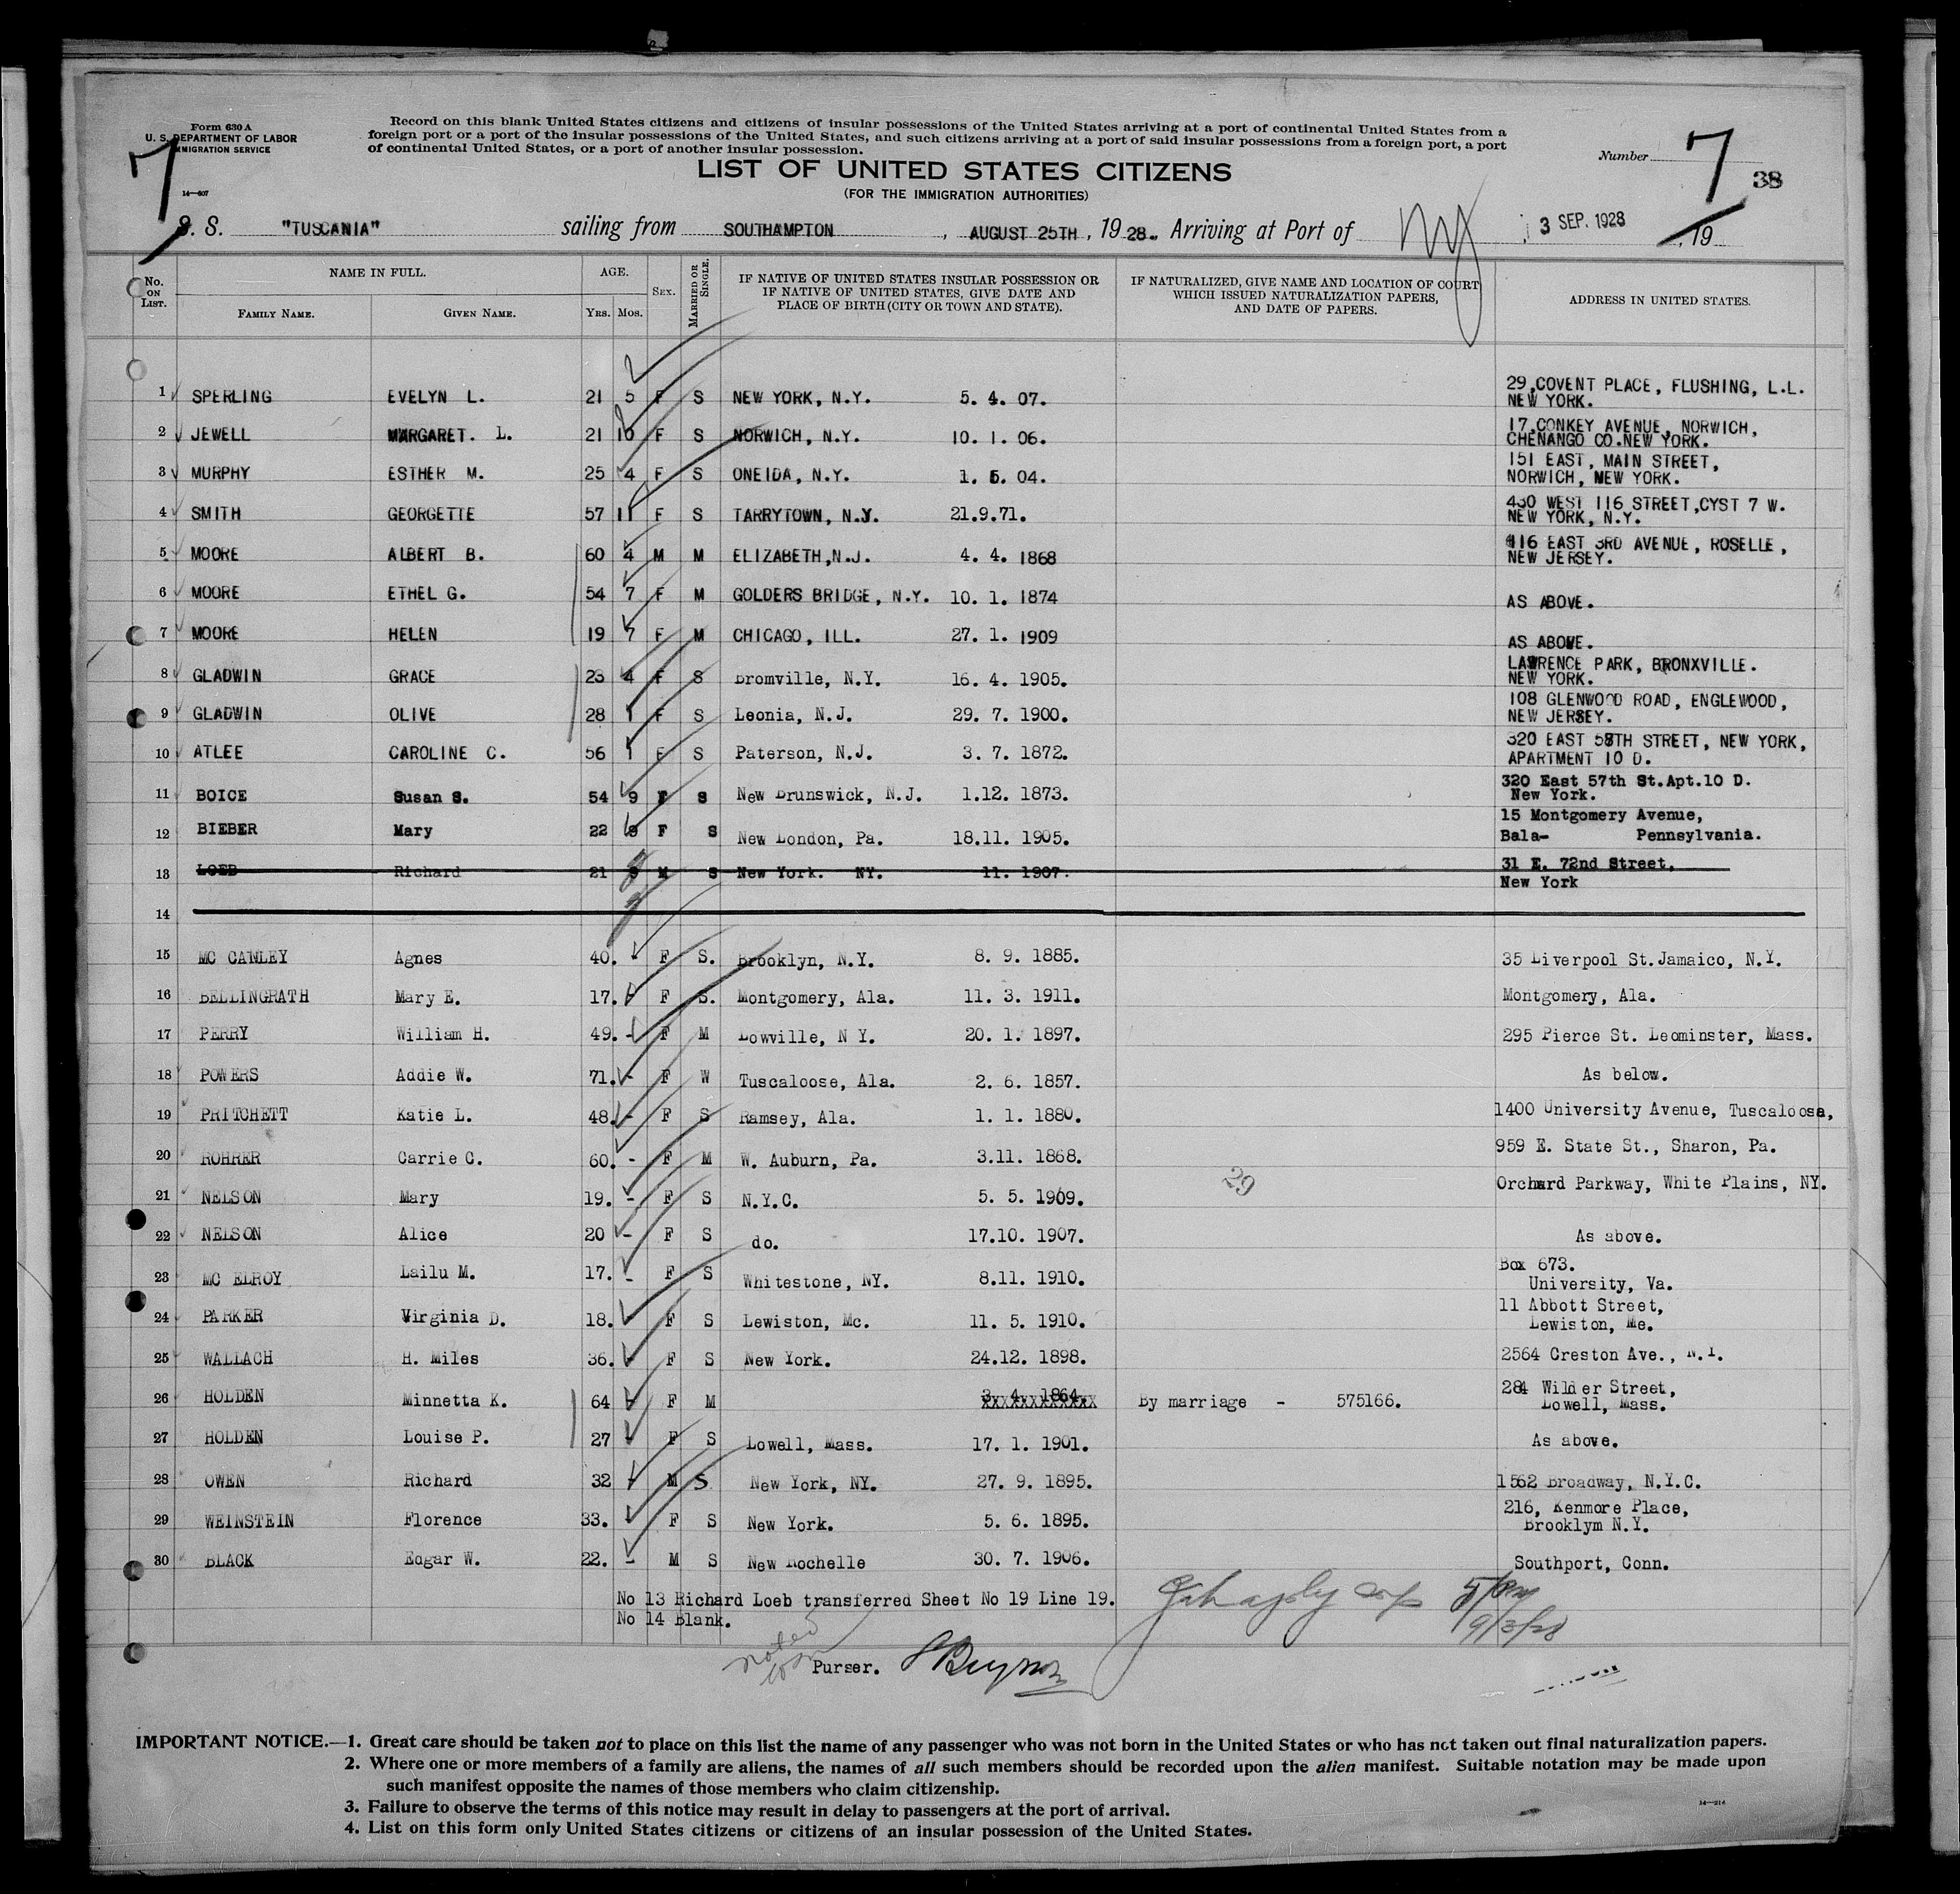 Form 630 A
U. S. DEPARTMENT OF LABOR
IMMIGRATION SERVICE
14—607
Record on this blank United States citizens and citizens of insular possessions of the United States arriving at a port of continental United States from a
foreign port or a port of the insular possessions of the United States, and such citizens arriving at a port of said insular possessions from a foreign port, a port
of continental United States, or a port of another insular possession.
7
LIST OF UNITED STATES CITIZENS
(FOR THE IMMIGRATION AUTHORITIES)
Number 7
38
S. S. "TUSCANIA" sailing from SOUTHAMPTON, AUGUST 25TH, 1928. Arriving at Port of NY 3 SEP. 1928, 19
No. ON LIST. NAME IN FULL. AGE. SEX. MARRIED OR SINGLE. IF NATIVE OF UNITED STATES INSULAR POSSESSION OR IF NATIVE OF UNITED STATES, GIVE DATE AND PLACE OF BIRTH (CITY OR TOWN AND STATE). IF NATURALIZED, GIVE NAME AND LOCATION OF COURT WHICH ISSUED NATURALIZATION PAPERS, AND DATE OF PAPERS. ADDRESS IN UNITED STATES.
FAMILY NAME. GIVEN NAME. YRS. MOS.
1 SPERLING EVELYN L. 21 5 F S NEW YORK, N.Y. 5. 4. 07. 29,COVENT PLACE, FLUSHING, L.L. NEW YORK.
2 JEWELL MARGARET. L. 21 10 F S NORWICH, N.Y. 10. 1. 06. 17,CONKEY AVENUE, NORWICH, CHENANGO CO.NEW YORK.
3 MURPHY ESTHER M. 25 4 F S ONEIDA, N.Y. 1. 5. 04. 151 EAST, MAIN STREET, NORWICH, NEW YORK.
4 SMITH GEORGETTE 57 11 F S TARRYTOWN, N.Y. 21.9.71. 430 WEST 116 STREET,CYST 7 W. NEW YORK, N.Y.
5 MOORE ALBERT B. 60 4 M M ELIZABETH,N.J. 4. 4. 1868 416 EAST 3RD AVENUE, ROSELLE, NEW JERSEY.
6 MOORE ETHEL G. 54 7 F M GOLDERS BRIDGE, N.Y. 10. 1. 1874 AS ABOVE.
7 MOORE HELEN 19 7 F M CHICAGO, ILL. 27. 1. 1909 AS ABOVE.
8 GLADWIN GRACE 23 4 F S Bromville, N.Y. 16. 4. 1905. LAWRENCE PARK, BRONXVILLE. NEW YORK.
9 GLADWIN OLIVE 28 1 F S Leonia, N.J. 29. 7. 1900. 108 GLENWOOD ROAD, ENGLEWOOD, NEW JERSEY.
10 ATLEE CAROLINE C. 56 1 F S Paterson, N.J. 3. 7. 1872. 320 EAST 58TH STREET, NEW YORK, APARTMENT 10 D.
11 BOICE Susan S. 54 9 F S New Brunswick, N.J. 1.12. 1873. 320 East 57th St.Apt.10 D. New York.
12 BIEBER Mary 22 9 F S New London, Pa. 18.11. 1905. 15 Montgomery Avenue, Bala- Pennsylvania.
13 LOEB Richard 21 9 M S New York. NY. 11. 1907. 31 E. 72nd Street, New York
14
15 MC CANLEY Agnes 40. - F S. Brooklyn, N.Y. 8. 9. 1885. 35 Liverpool St.Jamaico, N.Y.
16 BELLINGRATH Mary E. 17. - F S. Montgomery, Ala. 11. 3. 1911. Montgomery, Ala.
17 PERRY William H. 49. - F M Lowville, N Y. 20. 1. 1897. 295 Pierce St. Leominster, Mass.
18 POWERS Addie W. 71. - F W Tuscaloose, Ala. 2. 6. 1857. As below.
19 PRITCHETT Katie L. 48. - F S Ramsey, Ala. 1. 1. 1880. 1400 University Avenue, Tuscaloosa,
20 ROHRER Carrie C. 60. - F M W. Auburn, Pa. 3.11. 1868. 959 E. State St., Sharon, Pa.
21 NELSON Mary 19. - F S N.Y.C. 5. 5. 1909. 29 Orchard Parkway, White Plains, NY.
22 NELSON Alice 20 - F S do. 17.10. 1907. As above.
23 MC ELROY Lailu M. 17. - F S Whitestone, NY. 8.11. 1910. Box 673. University, Va.
24 PARKER Virginia D. 18. F S Lewiston, Mc. 11. 5. 1910. 11 Abbott Street, Lewiston, Me.
25 WALLACH H. Miles 36. - F S New York. 24.12. 1898. 2564 Creston Ave., N.Y.
26 HOLDEN Minnetta K. 64 - F M 3. 4. 1864. By marriage - 575166. 284 Wilder Street, Lowell, Mass.
27 HOLDEN Louise P. 27 - F S Lowell, Mass. 17. 1. 1901. As above.
28 OWEN Richard 32 - M S New York, NY. 27. 9. 1895. 1562 Broadway, N.Y.C.
29 WEINSTEIN Florence 33. F S New York. 5. 6. 1895. 216, Kenmore Place, Brooklym N.Y.
30 BLACK Edgar W. 22. - M S New Rochelle 30. 7. 1906. Southport, Conn.
No 13 Richard Loeb transferred Sheet No 19 Line 19.
No 14 Blank.
5/
9/3/28
noted
Purser.
IMPORTANT NOTICE.—1. Great care should be taken not to place on this list the name of any passenger who was not born in the United States or who has not taken out final naturalization papers.
2. Where one or more members of a family are aliens, the names of all such members should be recorded upon the alien manifest. Suitable notation may be made upon
such manifest opposite the names of those members who claim citizenship.
3. Failure to observe the terms of this notice may result in delay to passengers at the port of arrival.
4. List on this form only United States citizens or citizens of an insular possession of the United States.
14—214